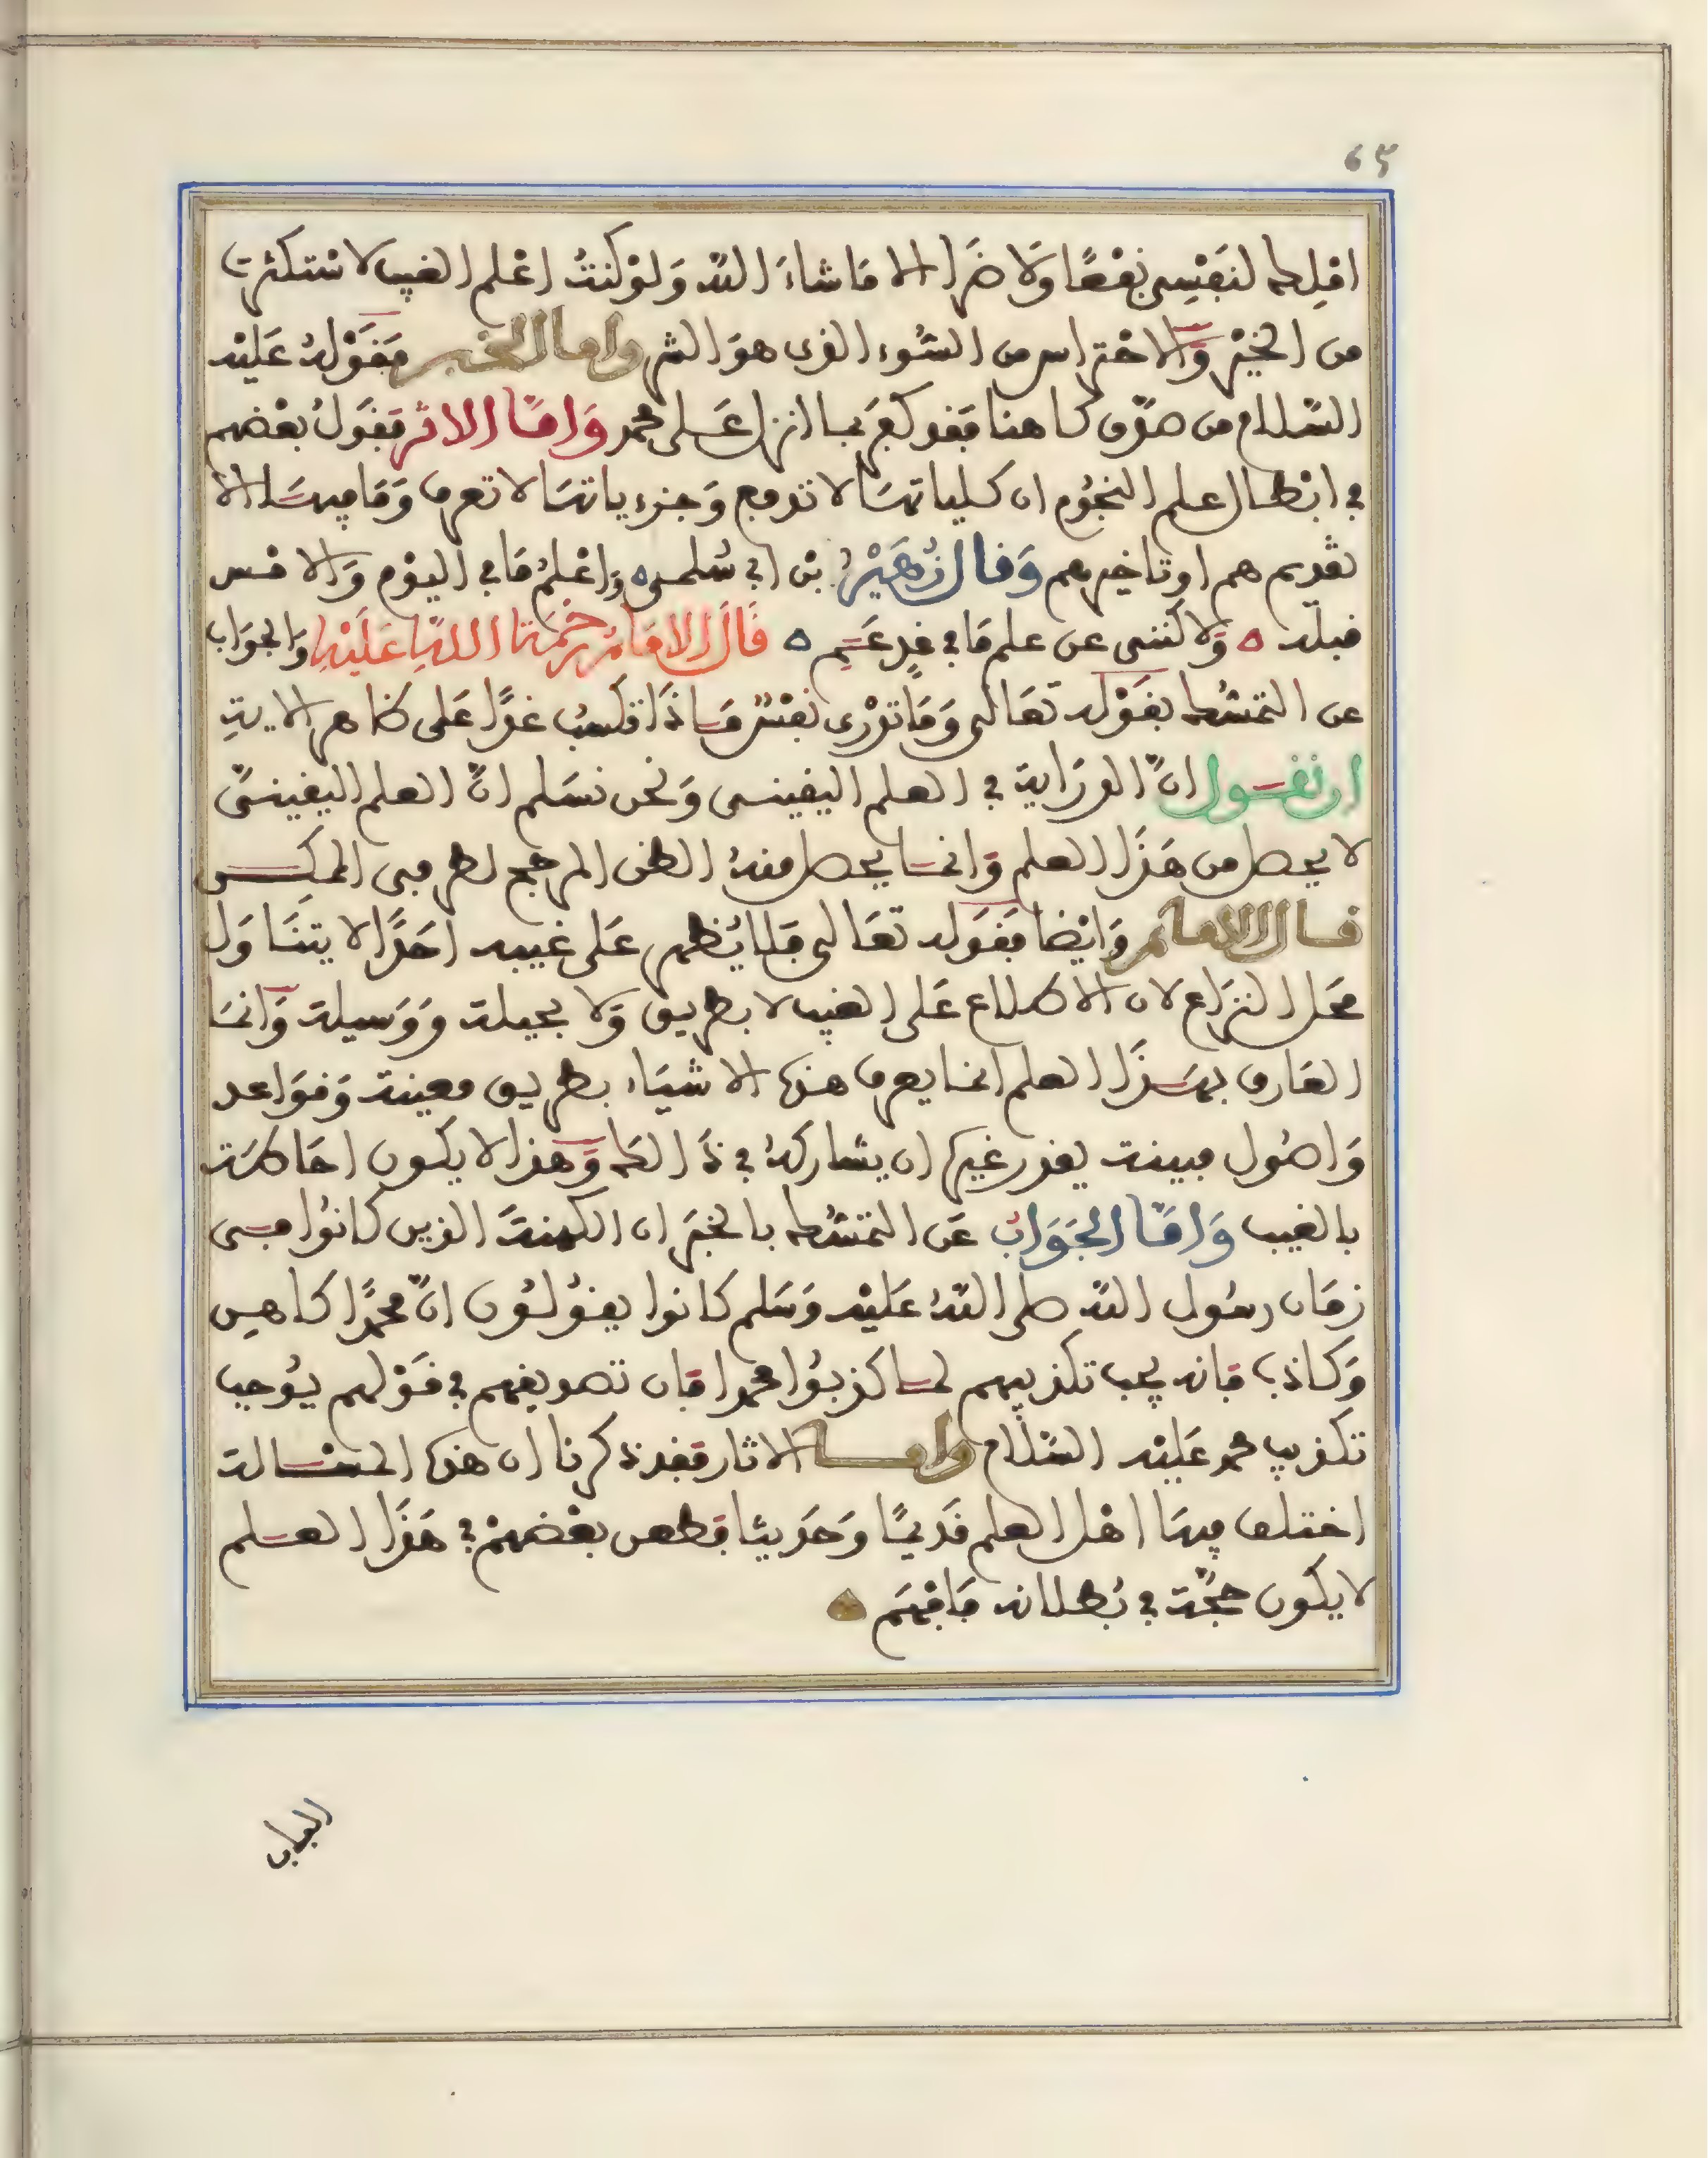 65
املك لنفسي نفعا ولا ضرا الا ما شاء الله ولو كنت اعلم الغيب لاستكثرت
من الخير والاحتراس من السوء الذي هو الشر واما الخبر فقوله عليه
السلام من صدق كاهنا فقد كفر بما انزل على محمد واما الاثر فقول بعضهم
في ابطال علم النجوم ان كلياتها لا تدفع وجزءياتها لا تعرف وما فيها الا
تقديم هم او تاخير مهم وقال زهير بن ابي سلمى واعلم ما في اليوم والامس
قبله ولاكنني عن علم ما في غد عم قال الامام رحمة الله عليه والجواب
عن التمسك بقوله تعالى وما تدري نفس ماذا تكسب غدا على ظاهر الاية
ان نقول ان الدراية في العلم اليقيني ونحن نسلم ان العلم اليقيني
لا يحصل من هذا العلم وانما يحصل منه الظن المرجح لطرفي الحكم
قال الامام وايضا فقوله تعالى فلا يظهر على غيبه احدا لا يتناول
محل النزاع لان الاطلاع على الغيب لا بطريق ولا بحيلة ووسيلة وانما
العارف بهذا العلم انما يعرف هذه الاشياء بطريق معينة وقواعد
واصول مبينة يقدر غيره ان يشاركه في ذالك وهذا لا يكون احاطة
بالغيب واما الجواب عن التمسك بالخبر ان الكهنة الذين كانوا في
زمان رسول الله صلى الله عليه وسلم كانوا يقولون ان محمدا كاهن
وكاذب فانه يجب تكذيبهم لما كذبوا محمدا فان تصديقهم في قولهم يوجب
تكذيب محمد عليه السلام واما الاثار فقد ذكرنا ان هذه المسالة
اختلف فيها اهل العلم قديما وحديثا فطعن بعضهم في هذا العلم
لا يكون حجة في بطلانه فافهم
الباب